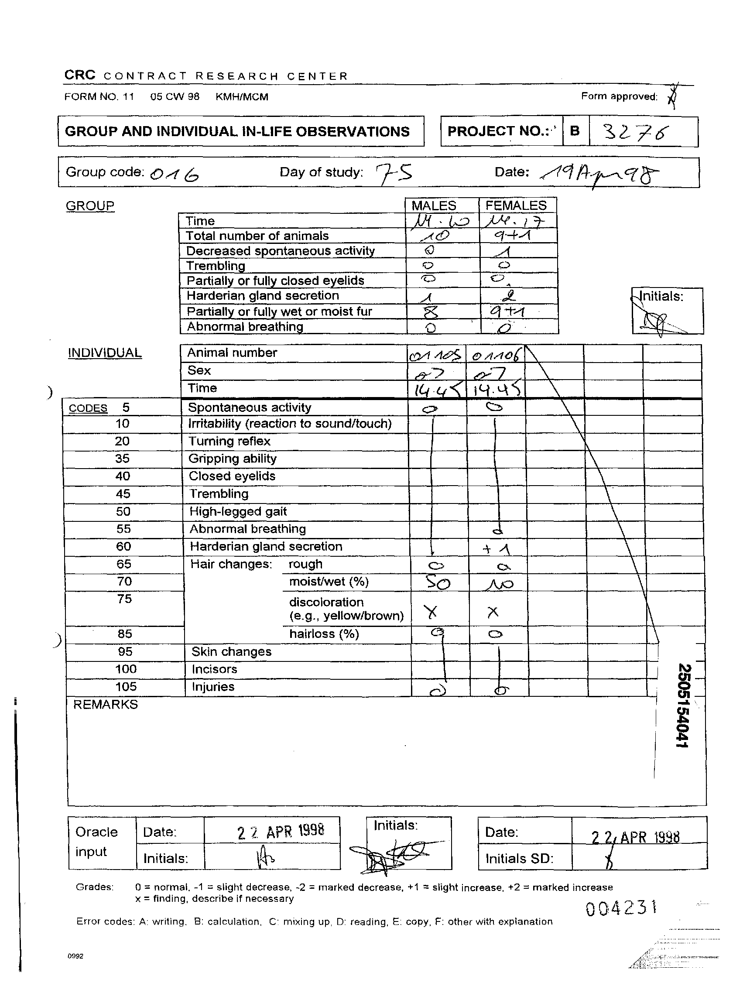 CRC CONTRACT RESEARCH CENTER
FORM NO. 11 05 CW 98 KMH/MCM Form approved:
GROUP AND INDIVIDUAL IN-LIFE OBSERVATIONS PROJECT NO.: B 3276
Group code: 016 Day of study: 75 Date: 19Apr98
GROUP MALES FEMALES
Time 14.17
Total number of animals 10 9+1
Decreased spontaneous activity 0 1
Trembling 0 0
Partially or fully closed eyelids 0 0
Harderian gland secretion 1 2 Initials:
Partially or fully wet or moist fur 8 9+1
Abnormal breathing 0 0
INDIVIDUAL Animal number 01105 01106
Sex
Time 14.45 14.45
CODES 5 Spontaneous activity 0 0
10 Irritability (reaction to sound/touch)
20 Turning reflex
35 Gripping ability
40 Closed eyelids
45 Trembling
50 High-legged gait
55 Abnormal breathing 0
60 Harderian gland secretion +1
65 Hair changes: rough 0 0
70 moist/wet (%) 50 10
75 discoloration
(e.g., yellow/brown) X X
85 hairloss (%) 0 0
95 Skin changes
100 Incisors
105 Injuries 0 0
REMARKS
2505154041
Oracle input Date: 22 APR 1998 Initials: Date: 22 APR 1998
Initials: Initials SD:
Grades: 0 = normal, -1 = slight decrease, -2 = marked decrease, +1 = slight increase, +2 = marked increase
x = finding, describe if necessary
004231
Error codes: A: writing, B: calculation, C: mixing up, D: reading, E: copy, F: other with explanation
0992